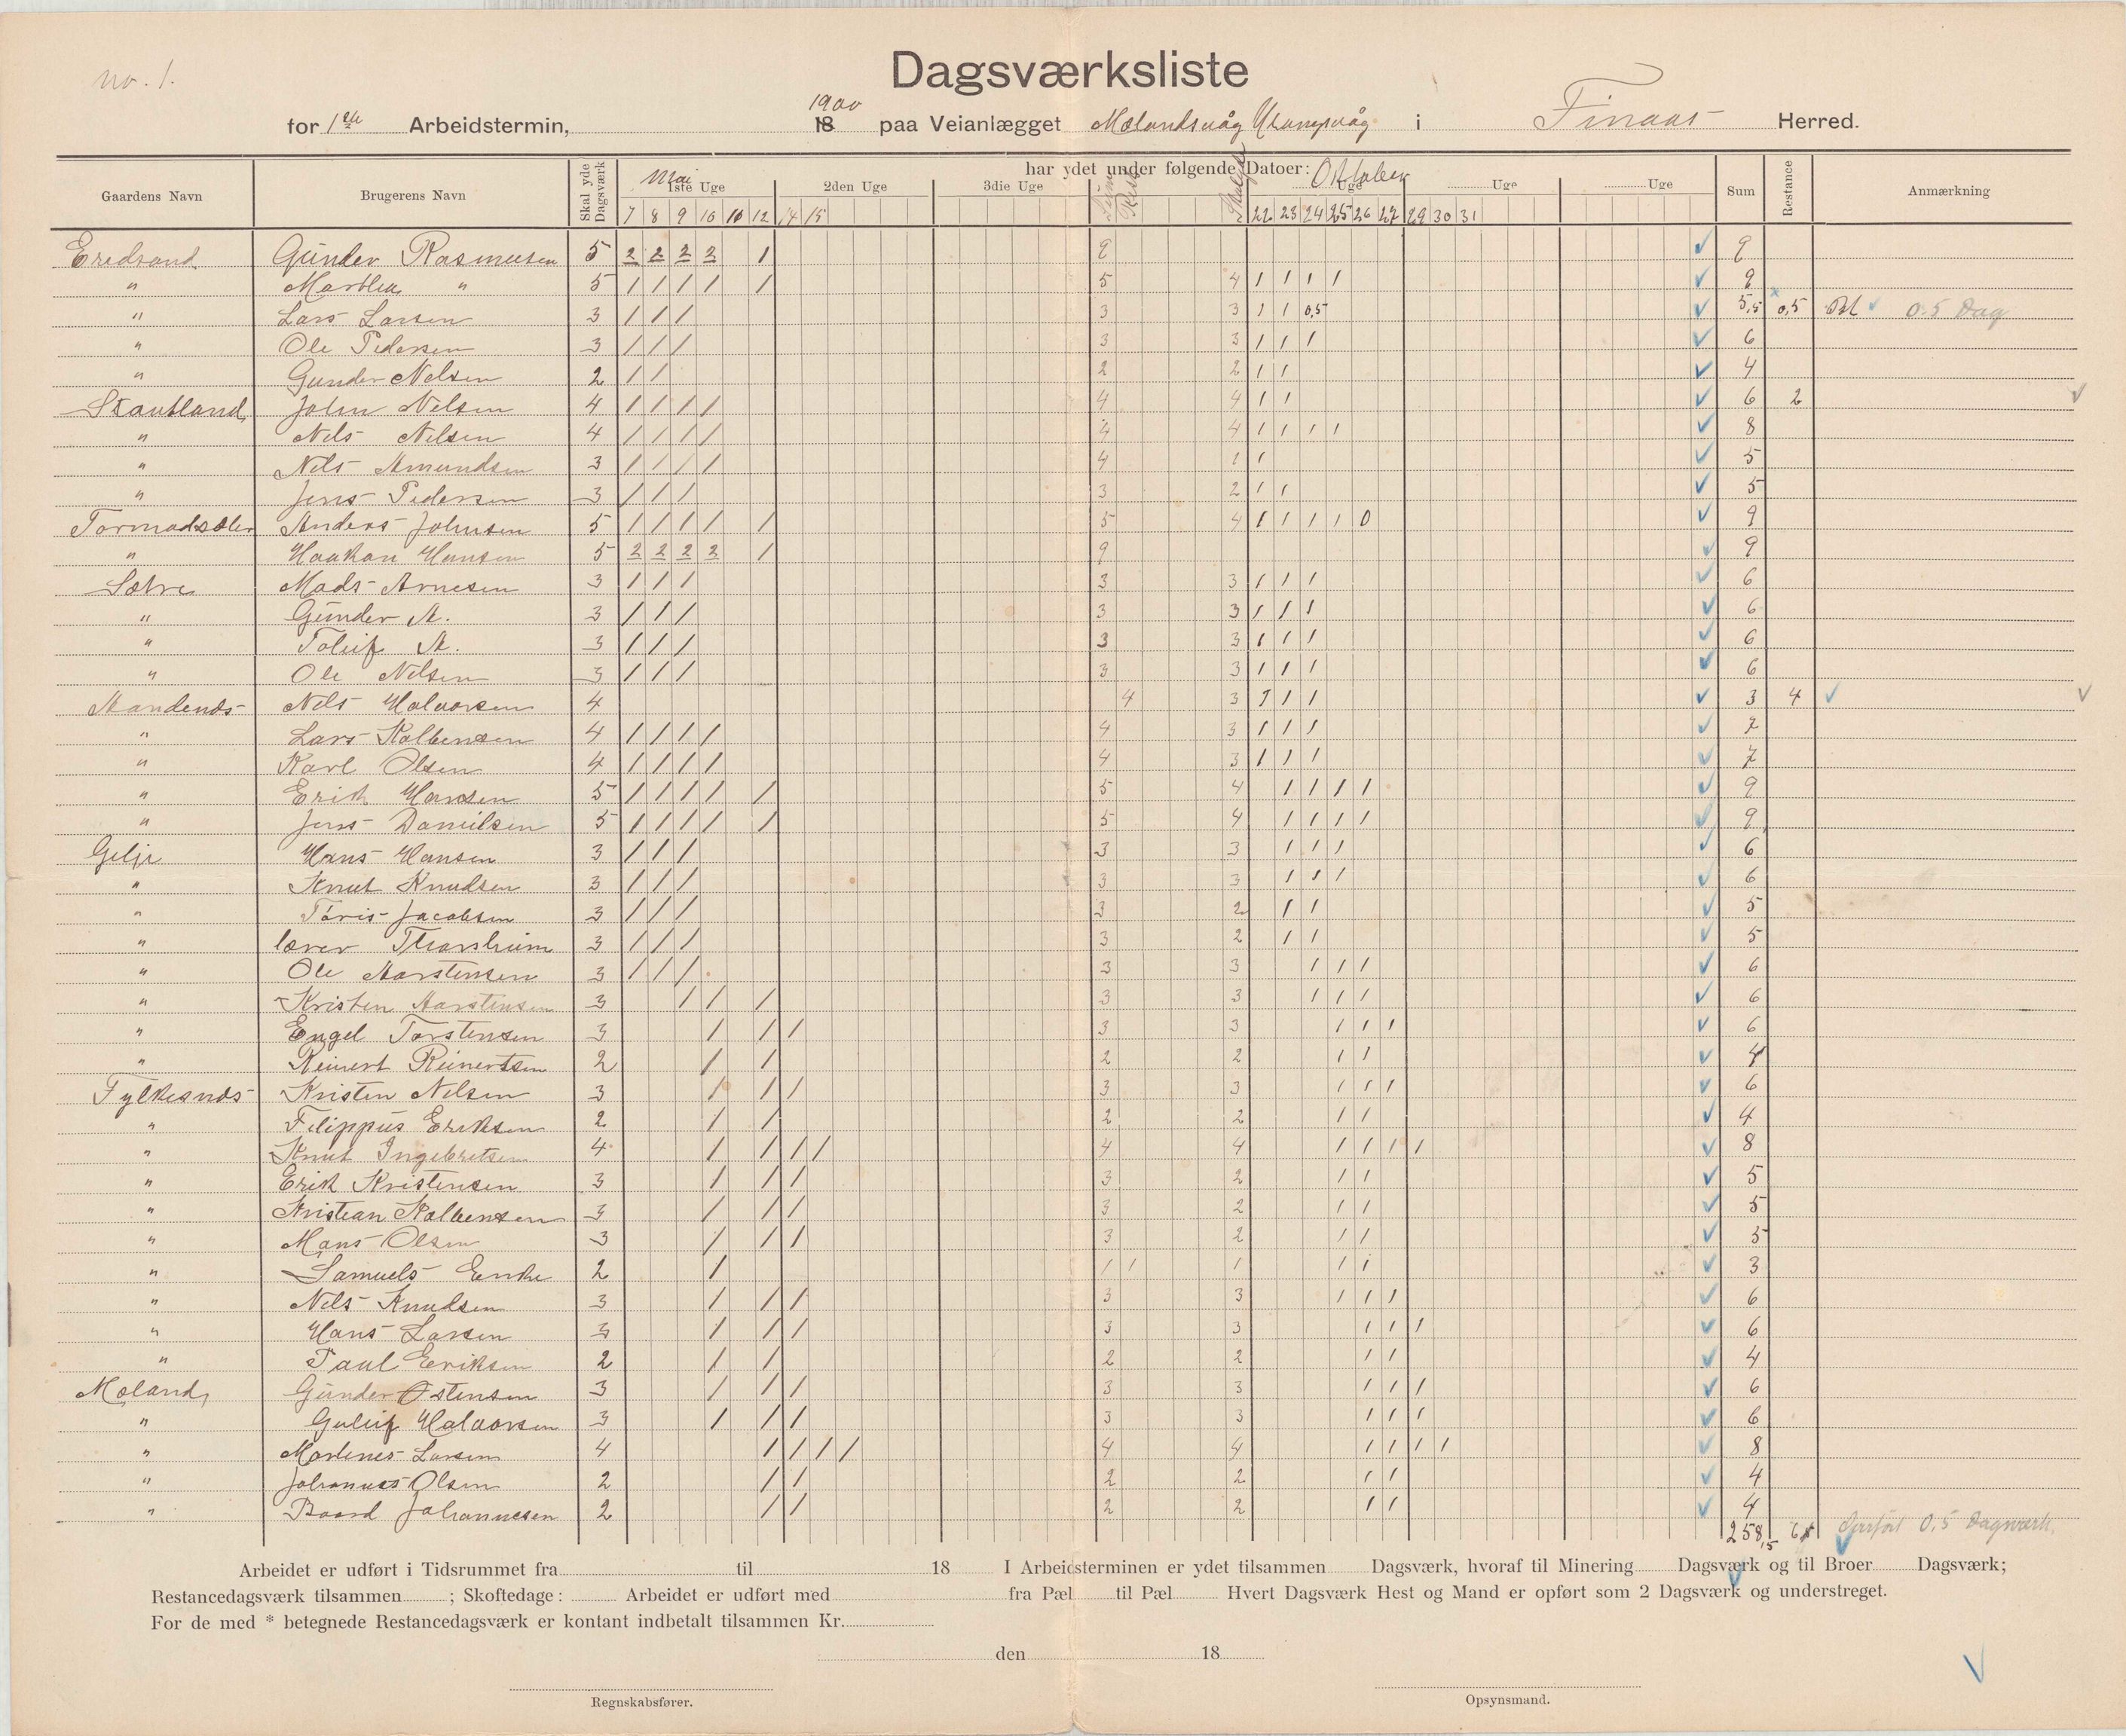 no. 1.
Dagsværksliste
for 1ste Arbeidstermin, 18 1900 paa Veianlægget Mælandsvåg Urangsvåg i Finaas Herred.
Gaardens Navn Brugerens Navn Skal yde Dagsværk har ydet under følgende Datoer: Oktober Sum Restance Anmærkning
Mai 1ste Uge 2den Uge 3die Uge Sum Rest Skalyde Uge Uge Uge
7 8 9 10 11 12 14 15 22 23 24 25 26 27 29 30 31
Eredsand Gunder Rasmussen 5 2 2 2 2 1 9 9
" Martha " 5 / / / / / 5 4 1 1 1 1 9
" Lars Larsen 3 / / / 3 3 1 1 0,5 5,5 0,5 Bet 0.5 Dag
" Ole Pedersen 3 / / / 3 3 1 1 1 6
" Gunder Nelsen 2 / / 2 2 1 1 4
Skautland John Nelsen 4 / / / / 4 4 1 1 6 2
" Nels Nelsen 4 / / / / 4 4 1 1 1 1 8
" Nels Amundsen 3 / / / / 4 1 1 5
" Jens Pedersen 3 / / / 3 2 1 1 5
Tormodsæter Anders Johnsen 5 / / / / / 5 4 1 1 1 1 0 9
" Haakon Hansen 5 2 2 2 2 1 9 9
Sætre Mads Arnesen 3 / / / 3 3 1 1 1 6
" Gunder A. 3 / / / 3 3 1 1 1 6
" Tolleif A. 3 / / / 3 3 1 1 1 6
" Ole Nelsen 3 / / / 3 3 1 1 1 6
Aandenæs Nels Halvorsen 4 4 3 1 1 1 3 4
" Lars Kolbensen 4 / / / / 4 3 1 1 1 7
" Karl Olsen 4 / / / / 4 3 1 1 1 7
" Erik Hansen 5 / / / / / 5 4 1 1 1 1 9
" Jens Danielsen 5 / / / / / 5 4 1 1 1 1 9
Gilje Hans Hansen 3 / / / 3 3 1 1 1 6
" Knut Knudsen 3 / / / 3 3 1 1 1 6
" Tøris Jacobsen 3 / / / 3 2 1 1 5
" lærer Thorsheim 3 / / / 3 2 1 1 5
" Ole Aarstensen 3 / / / 3 3 1 1 1 6
" Kristen Aarstensen 3 / / / 3 3 1 1 1 6
" Engel Torstensen 3 / / / 3 3 1 1 1 6
" Reinert Reinertsen 2 / / 2 2 1 1 4
Fylkesnæs Kristen Nelsen 3 / / / 3 3 1 1 1 6
" Filippus Eriksen 2 / / 2 2 1 1 4
" Knut Ingebretsen 4 / / / / 4 4 1 1 1 1 8
" Erik Kristensen 3 / / / 3 2 1 1 5
" Kristian Kolbensen 3 / / / 3 2 1 1 5
" Mons Olsen 3 / / / 3 2 1 1 5
" Samuels Enke 2 / 1 1 1 1 1 3
" Nels Knudsen 3 / / / 3 3 1 1 1 6
" Hans Larsen 3 / / / 3 3 1 1 1 6
" Paul Eriksen 2 / / 2 2 1 1 4
Mæland Gunder Østensen 3 / / / 3 3 1 1 1 6
" Guleif Halvorsen 3 / / / 3 3 1 1 1 6
" Martines Larsen 4 / / / / 4 4 1 1 1 1 8
" Johannes Olsen 2 / / 2 2 1 1 4
" Baard Johannesen 2 / / 2 2 1 1 4
258,5 0,5 Dagværk.
Arbeidet er udført i Tidsrummet fra til 18 I Arbeidsterminen er ydet tilsammen Dagsværk, hvoraf til Minering Dagsværk og til Broer Dagsværk;
Restancedagsværk tilsammen ; Skoftedage: Arbeidet er udført med fra Pæl til Pæl Hvert Dagsværk Hest og Mand er opført som 2 Dagsværk og understreget.
For de med * betegnede Restancedagsværk er kontant indbetalt tilsammen Kr.
den 18
Regnskabsfører. Opsynsmand.